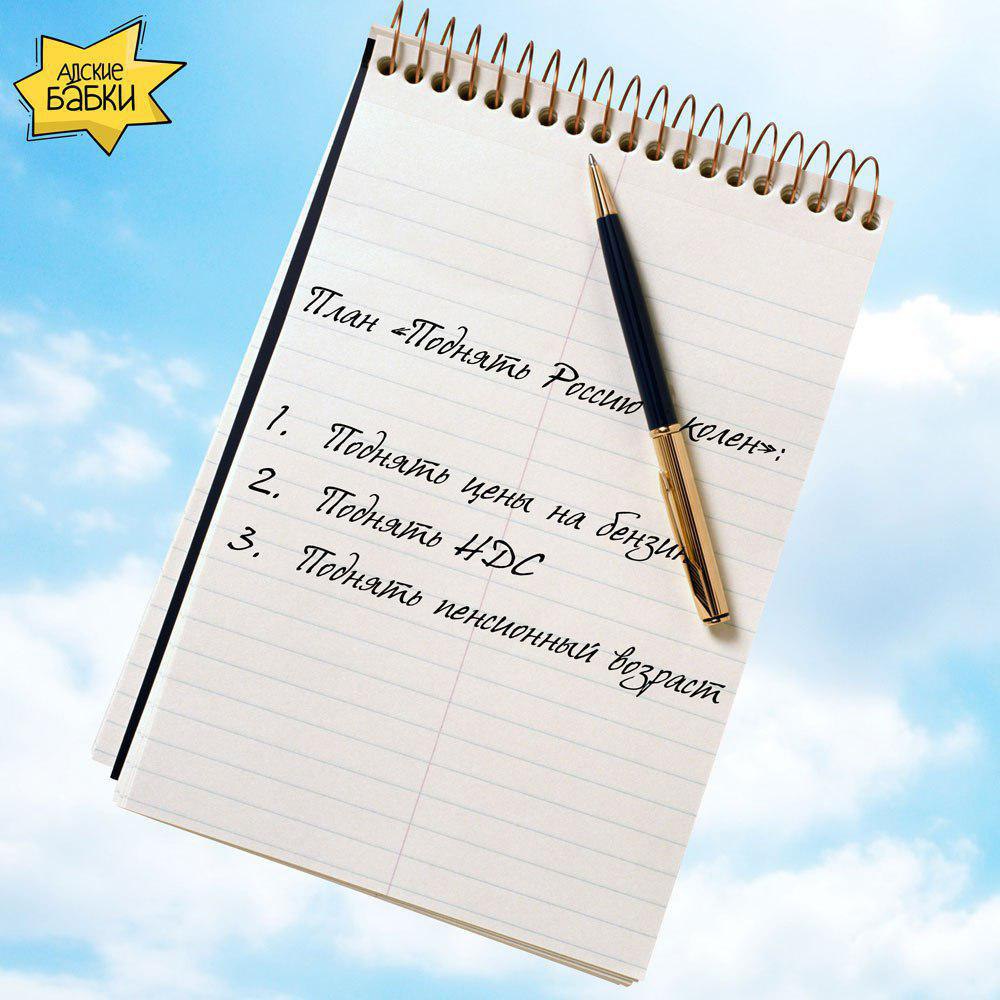 АДСКИЕ
БАБКИ
План «Поднять Россию колен»:
1. Поднять цены на бензин
2. Поднять НДС
3. Поднять пенсионный возраст